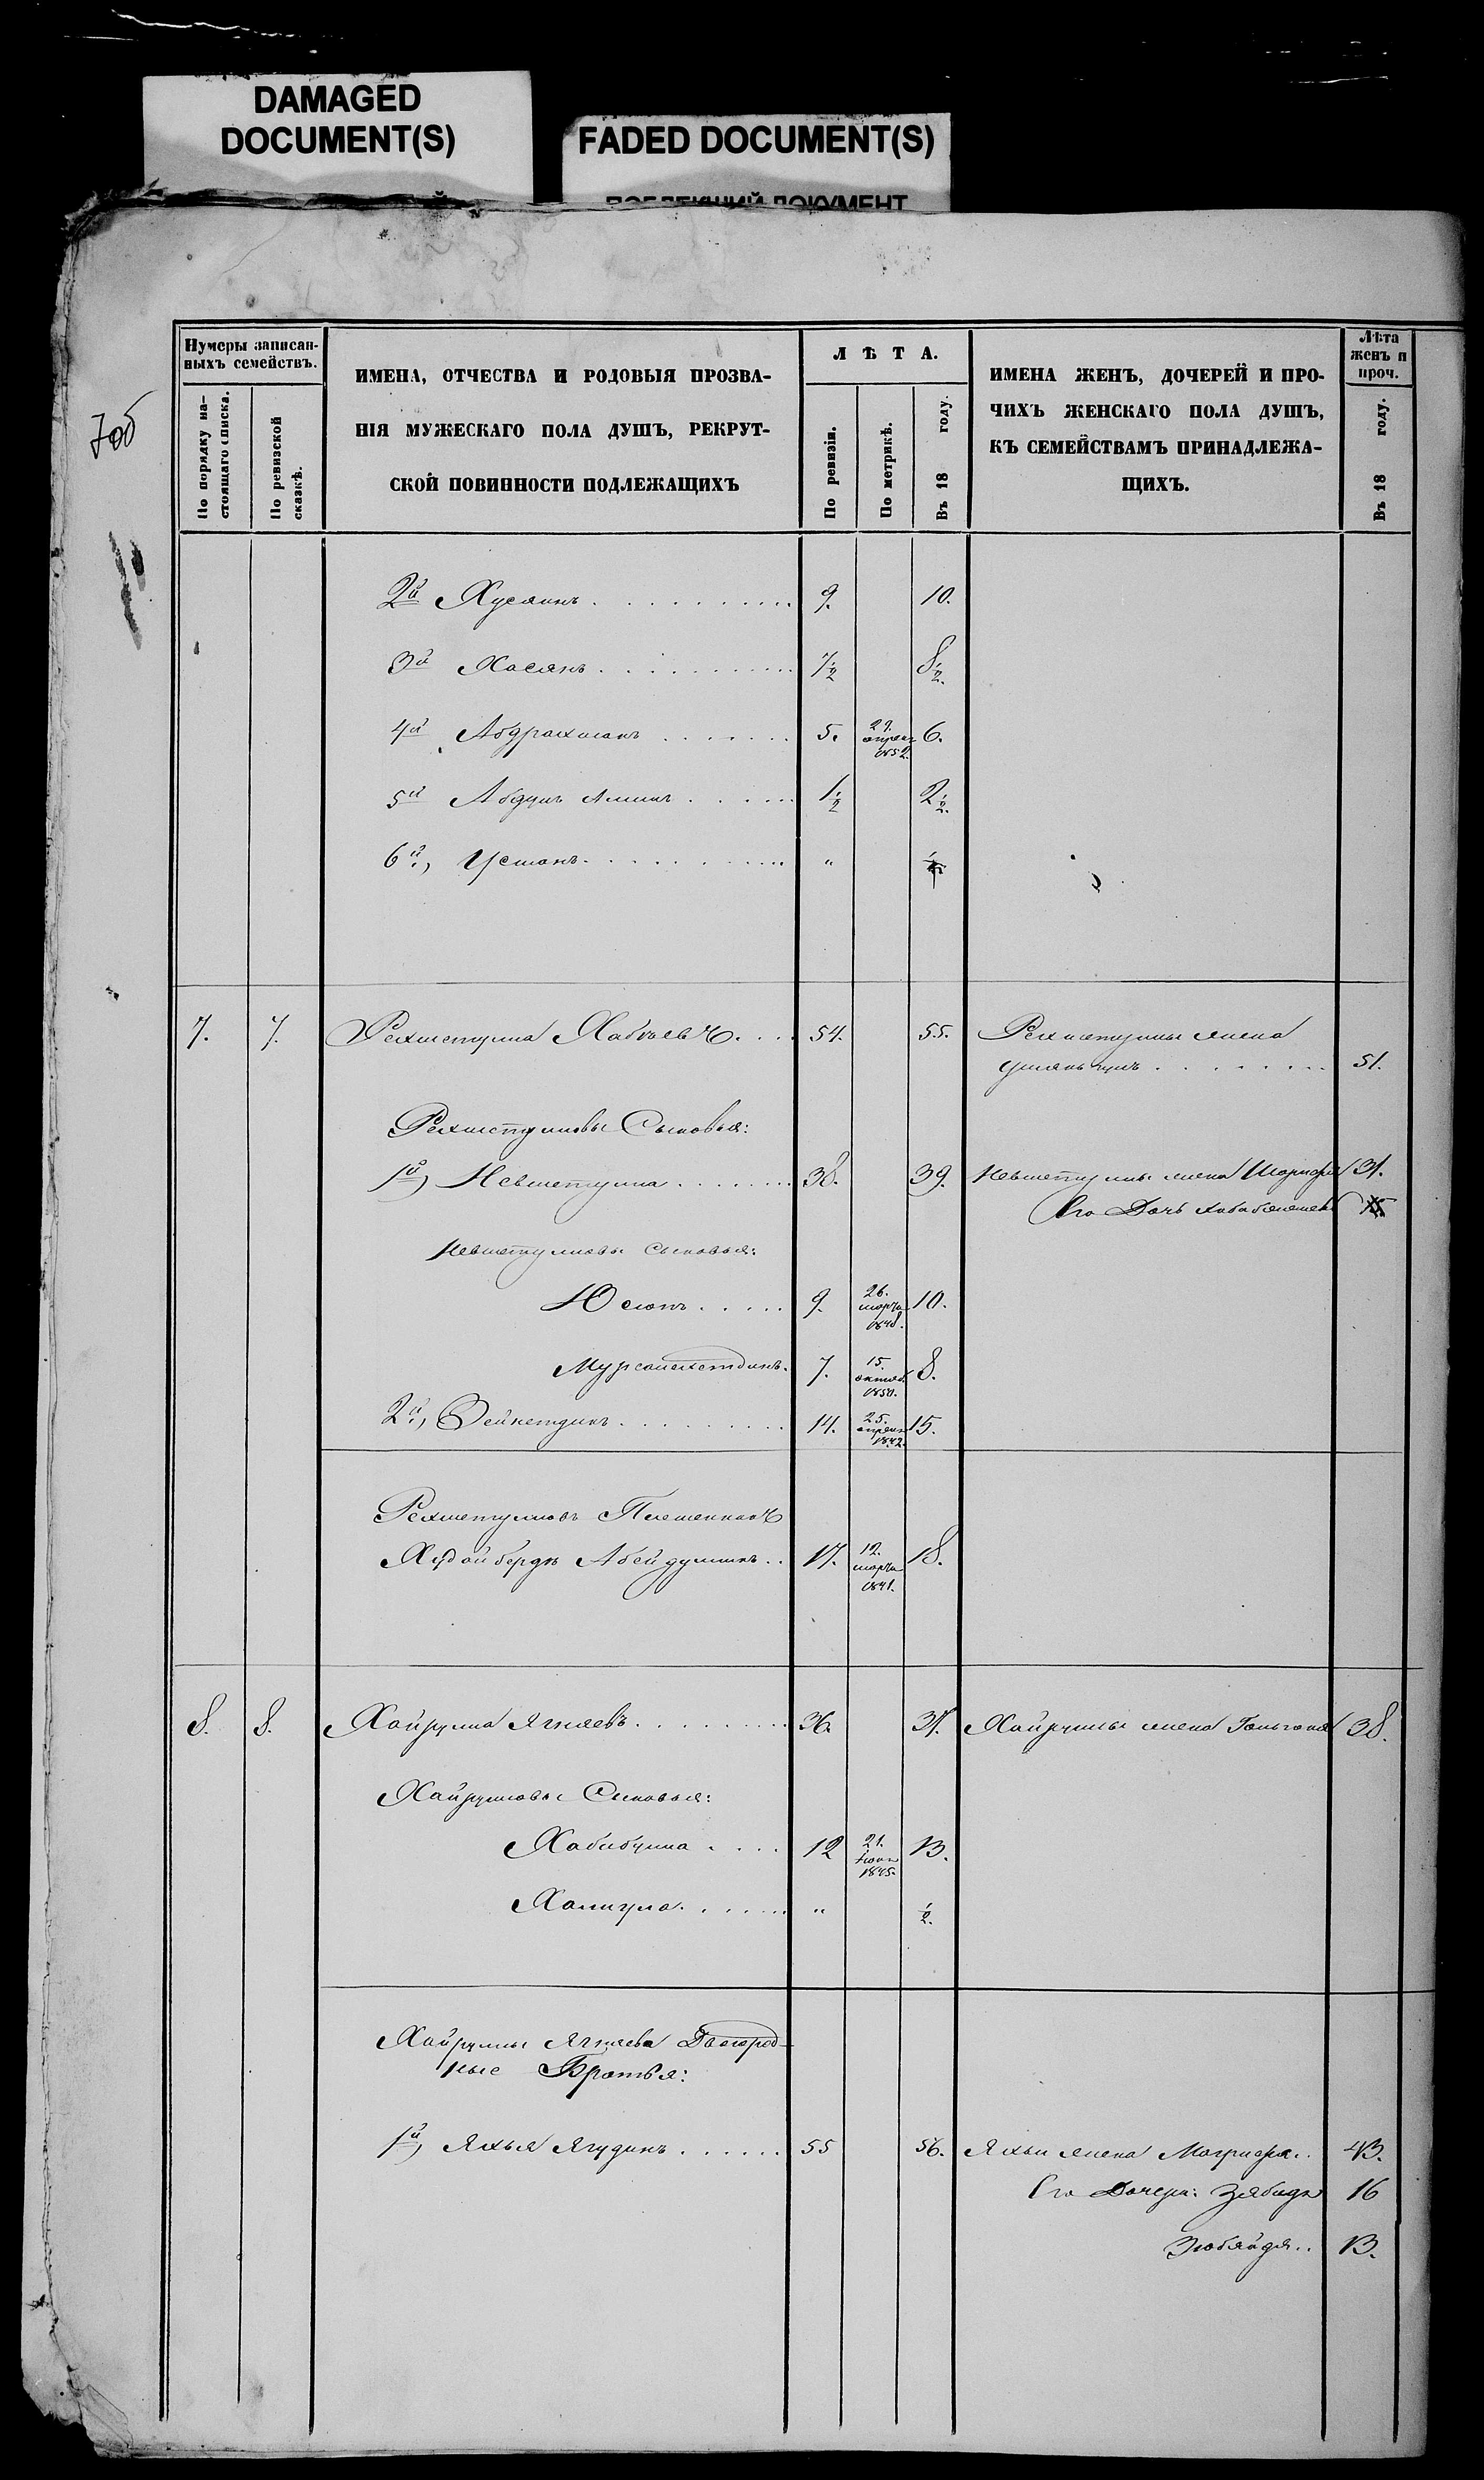 DAMAGED
DOCUMENT(S)
FADED DOCUMENT(S)
Нумеры записан-
ныхъ семействъ.
По порядку на-
стоящаго списка.
По ревизской
сказкѣ.
ИМЕНА, ОТЧЕСТВА И РОДОВЫЯ ПРОЗВА-
НІЯ МУЖЕСКАГО ПОЛА ДУШЪ, РЕКРУТ-
СКОЙ ПОВИННОСТИ ПОДЛЕЖАЩИХЪ
ЛѢТА.
По ревизіи.
По метрикѣ.
Въ 18 году.
ИМЕНА ЖЕНЪ, ДОЧЕРЕЙ И ПРО-
ЧИХЪ ЖЕНСКАГО ПОЛА ДУШЪ,
КЪ СЕМЕЙСТВАМЪ ПРИНАДЛЕЖА-
ЩИХЪ.
Лѣта
женъ и
проч.
Въ 18 году.
2й Хусяинъ . . . 9. 10.
3й Хасянъ . . . 7½ 8½.
4й Абдрахманъ . . . 5. 6.
апреля
1852.
5й Абдулъ Аминъ . . . 1½ 2½.
6й, Усманъ . . . "
7. 7. Рахметулла . . . 54. 55. Рахметуллы жена
. . . 51.
Рахметулловы Сыновья:
1й, Невметулла . . . 38. 39. Невметуллы жена
Его Дочь
Невметулловы сыновья:
Юсюпъ . . . 9. 26. марта 1848. 10.
7. 15. октяб. 1850. 8.
2й, Зейнетдинъ . . . 14. 25. апреля 1842. 15.
Рахметулловъ Племянникъ
Худайберда . . 17. 12. марта 1841. 18.
8. 8. Хайрулла Ягняевъ . . . 36. 37. Хайруллы жена 38.
Хайрулловы Сыновья:
Хабибулла . . . 12 21. 1845. 13.
Халиулла . . . " ½.
Хайруллы Ягняева Двоюрод-
ные Братья:
1й, Яхья Ягудинъ . . . 55 56. Яхьи жена . . 43.
Его Дочери: Зябида 16
Зюбяйдя . . 13.